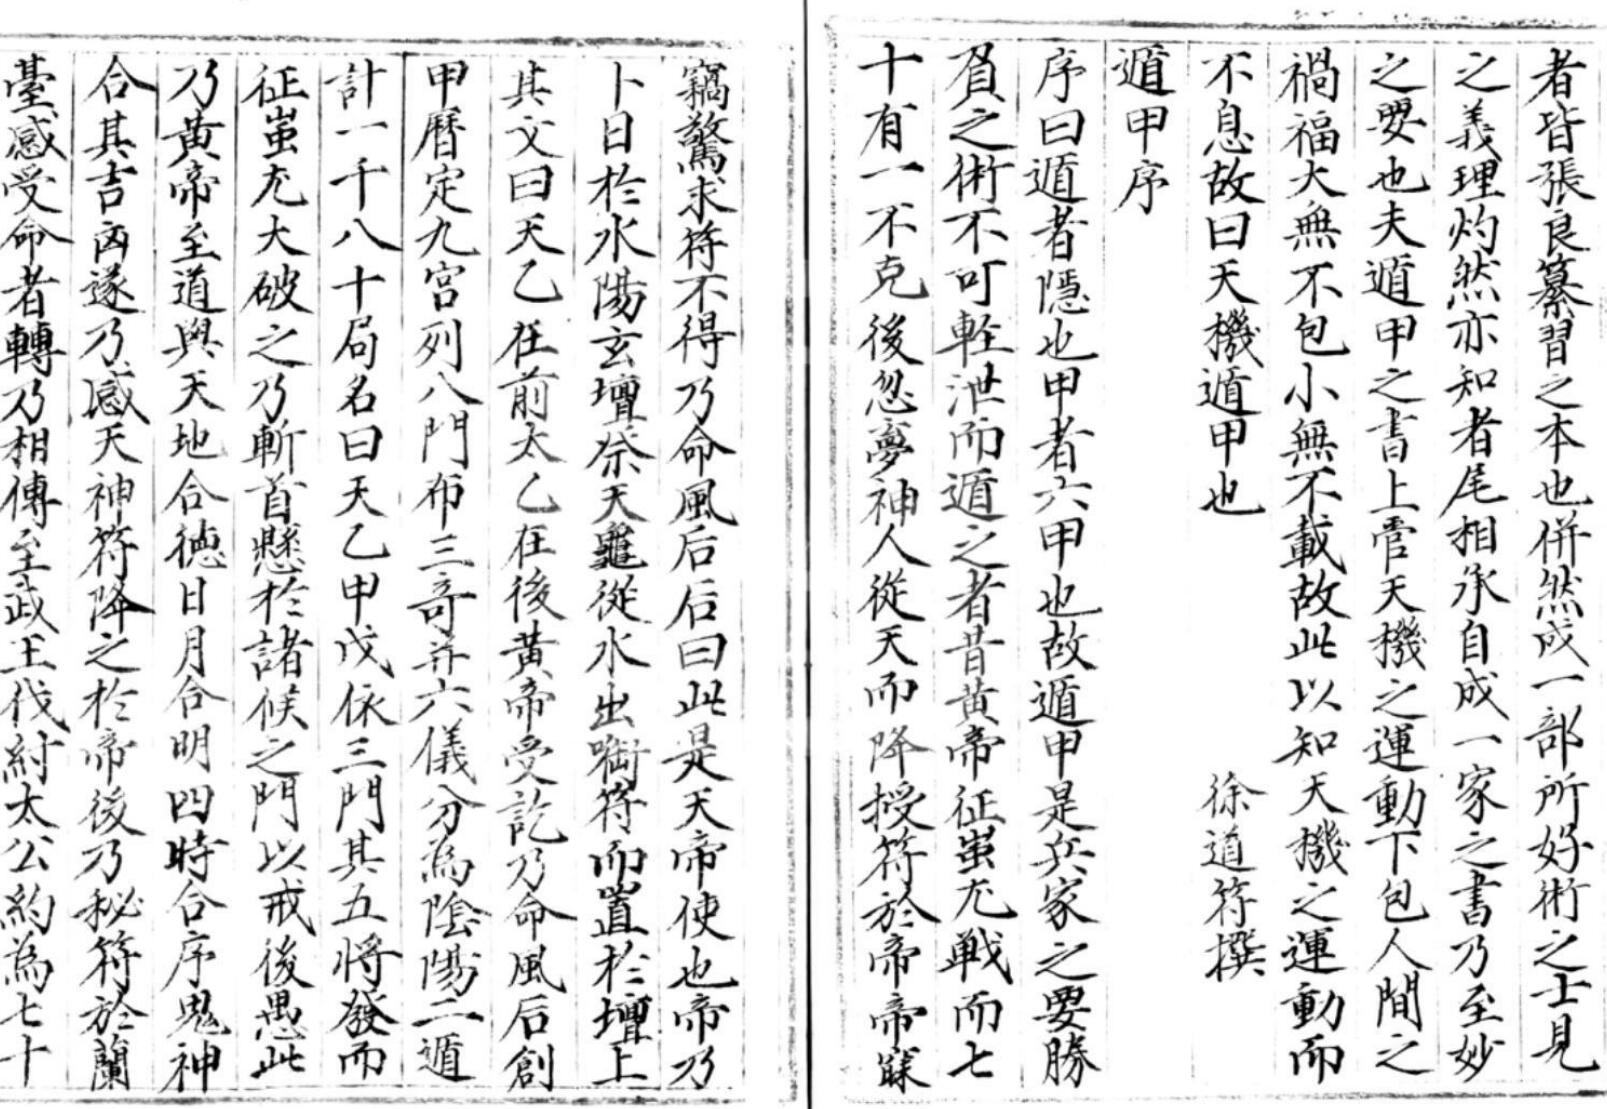 者皆張良纂習之本也併然成一部所好術之士見
之義理灼然亦知者尾相承自成一家之書乃至妙
之要也夫遁甲之書上管天機之運動下包人間之
禍福大無不包小無不載故此以知天機之運動而
不息故曰天機遁甲也　徐道符撰
遁甲序
序曰遁者隱也甲者六甲也故遁甲是兵家之要勝
負之術不可輕泄而遁之者昔黃帝征蚩尤戦而七
十有一不克後忽夢神人從天而降授符於帝帝寐
竊驚求符不得乃命風后后曰此是天帝使也帝乃
卜日於水陽玄壇祭天龜從水出啣符而置於壇上
其文曰天乙在前太乙在後黃帝受訖乃命風后創
甲曆定九宮列八門布三奇并六儀分為陰陽二遁
計一千八十局名曰天乙甲戊依三門其五將發而
征蚩尤大破之乃斬首懸於諸候之門以戒後愚此
乃黃帝至道與天地合德日月合明四時合序鬼神
合其吉凶遂乃感天神符降之於帝後乃秘符於蘭
臺感受命者轉乃相傳至武王伐紂太公約為七十